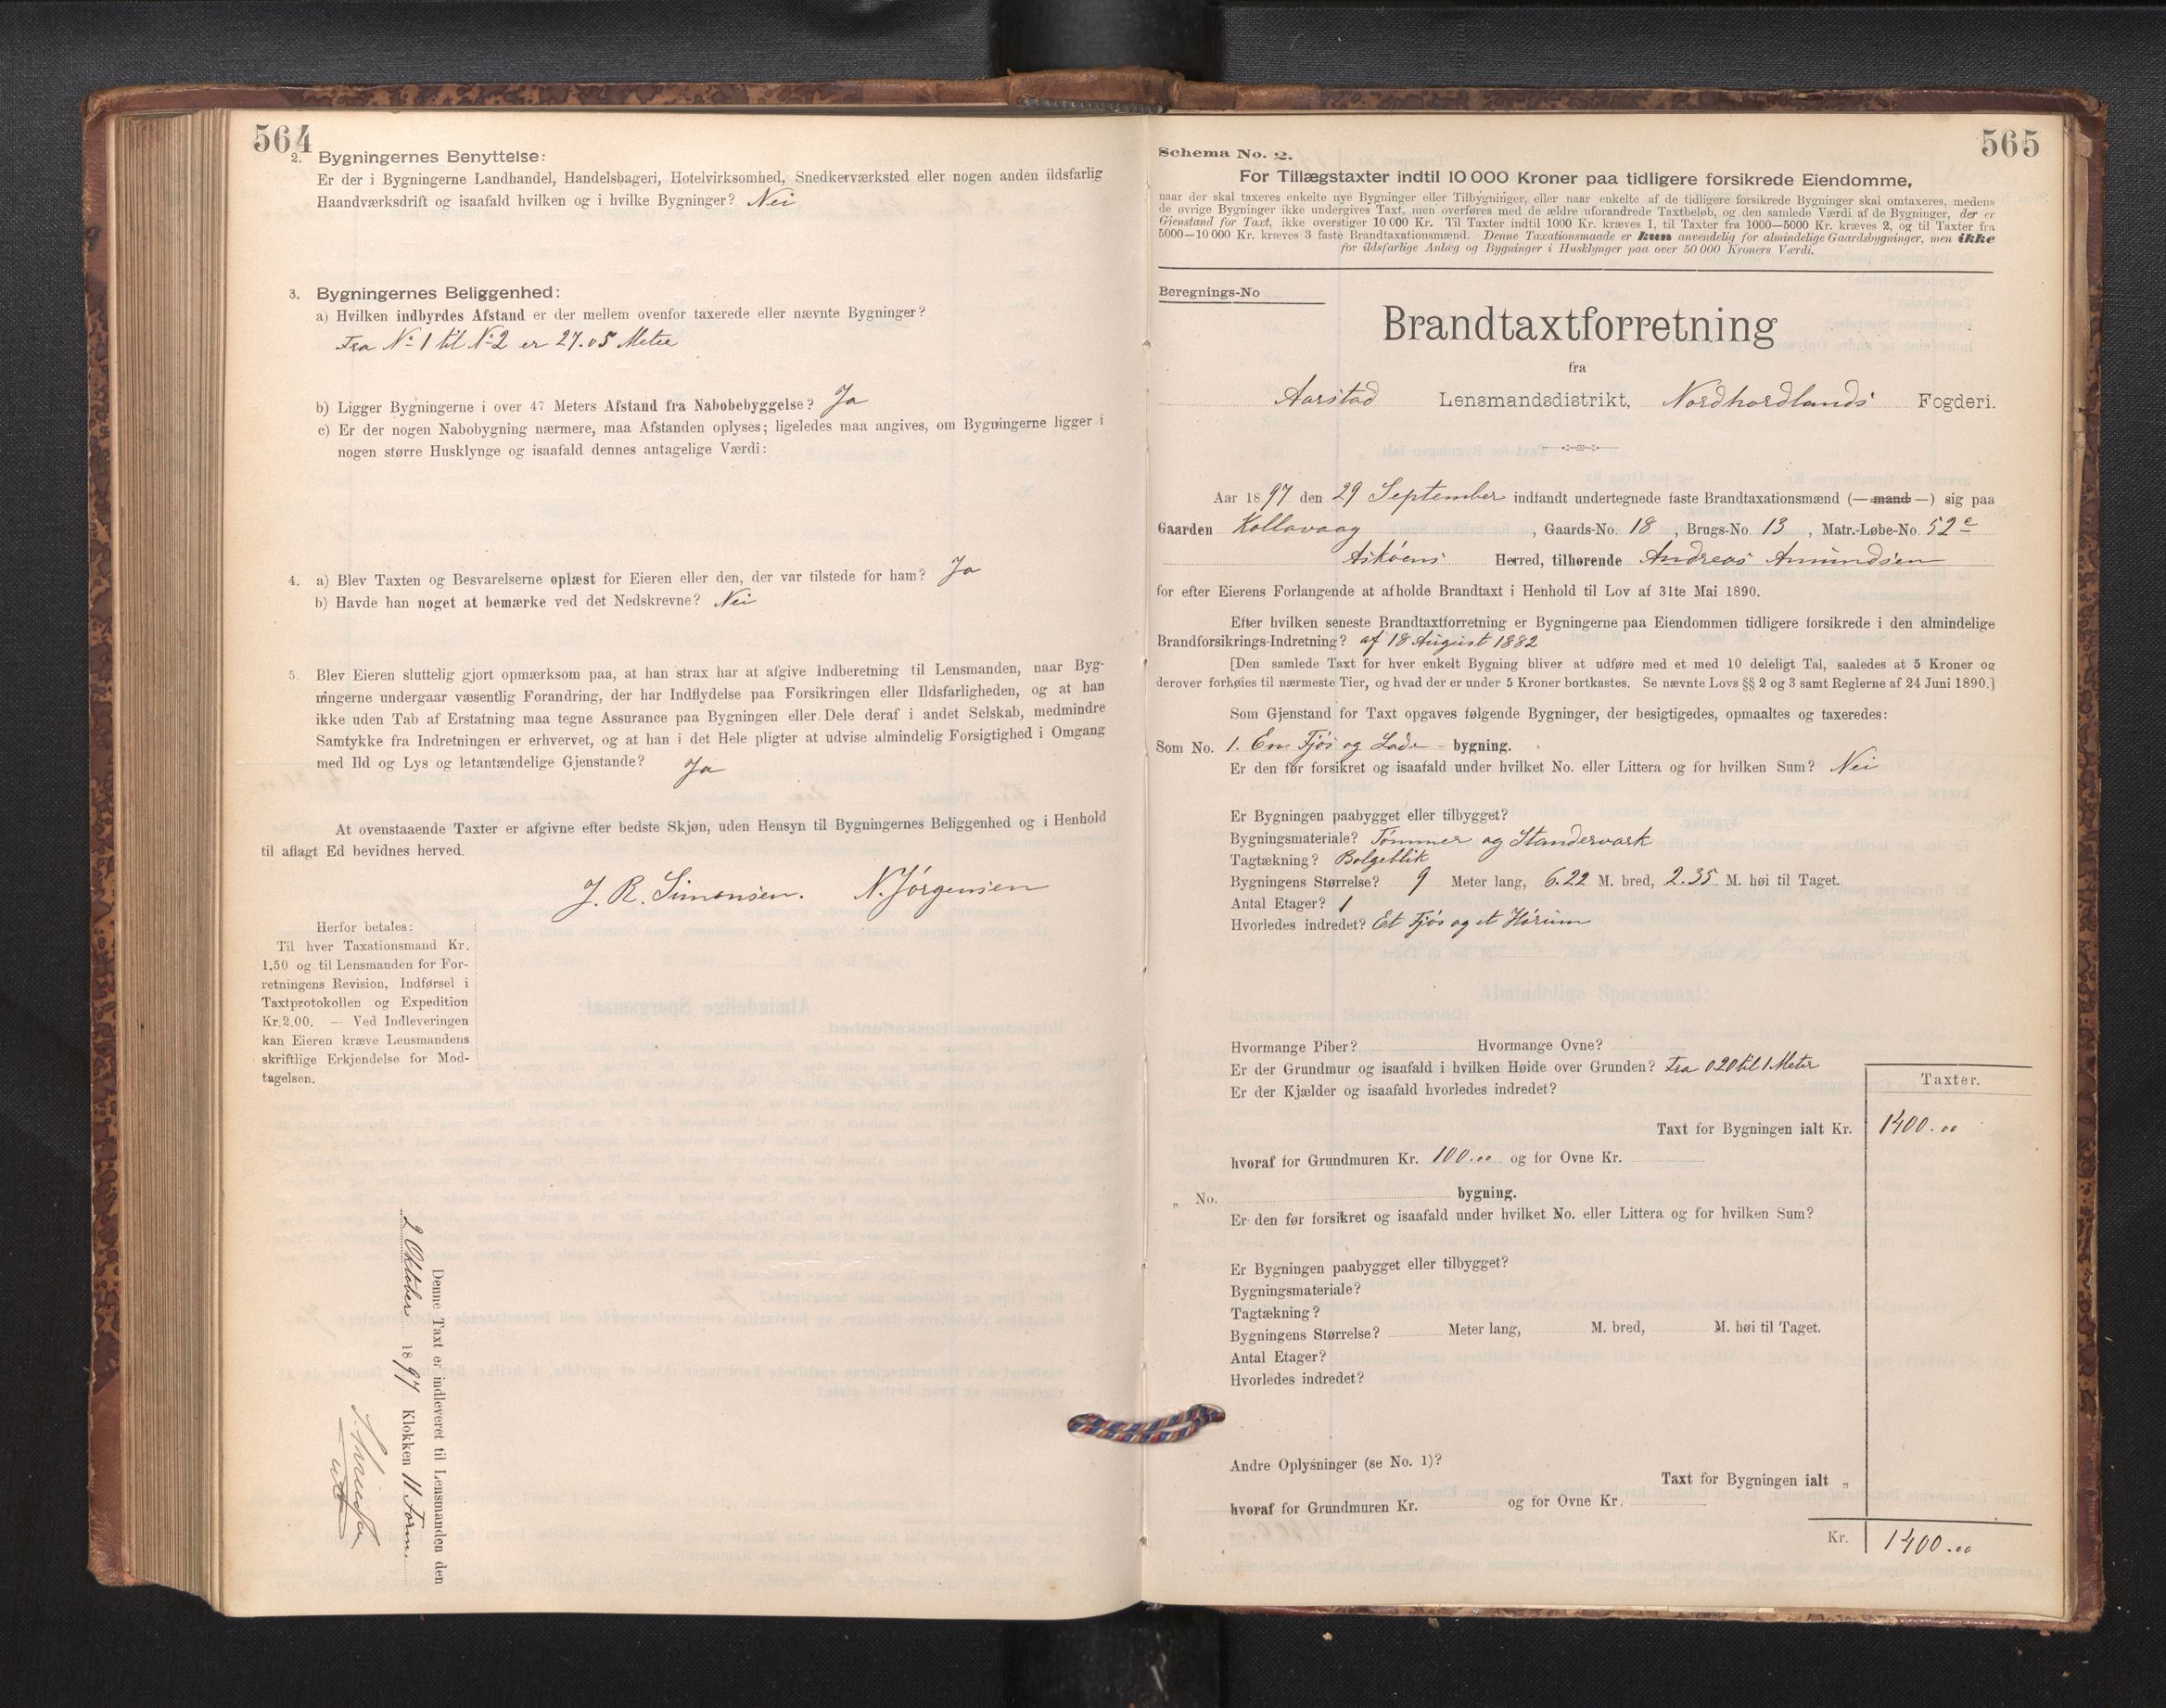 564
2. Bygningernes Benyttelse:
Er der i Bygningerne Landhandel, Handelsbageri, Hotelvirksomhed, Snedkerværksted eller nogen anden ildsfarlig
Haandværksdrift og isaafald hvilken og i hvilke Bygninger? Nei
3. Bygningernes Beliggenhed:
a) Hvilken indbyrdes Afstand er der mellem ovenfor taxerede eller nævnte Bygninger?
Fra No 1 til No 2 er 27.05 Meter
b) Ligger Bygningerne i over 47 Meters Afstand fra Nabobebyggelse? Ja
c) Er der nogen Nabobygning nærmere, maa Afstanden oplyses; ligeledes maa angives, om Bygningerne ligger i
nogen større Husklynge og isaafald dennes antagelige Værdi:
4. a) Blev Taxten og Besvarelserne oplæst for Eieren eller den, der var tilstede for ham? Ja
b) Havde han noget at bemærke ved det Nedskrevne? Nei
5. Blev Eieren sluttelig gjort opmærksom paa, at han strax har at afgive Indberetning til Lensmanden, naar Byg-
ningerne undergaar væsentlig Forandring, der har Indflydelse paa Forsikringen eller Ildsfarligheden, og at han
ikke uden Tab af Erstatning maa tegne Assurance paa Bygningen eller Dele deraf i andet Selskab, medmindre
Samtykke fra Indretningen er erhvervet, og at han i det Hele pligter at udvise almindelig Forsigtighed i Omgang
med Ild og Lys og letantændelige Gjenstande? Ja
At ovenstaaende Taxter er afgivne efter bedste Skjøn, uden Hensyn til Bygningernes Beliggenhed og i Henhold
til aflagt Ed bevidnes herved.
J. R. Simonsen. N. Jørgensen
Herfor betales:
Til hver Taxationsmand Kr.
1.50 og til Lensmanden for For-
retningens Revision, Indførsel i
Taxtprotokollen og Expedition
Kr. 2.00. — Ved Indleveringen
kan Eieren kræve Lensmandens
skriftlige Erkjendelse for Mod-
tagelsen.
Denne Taxt er indleveret til Lensmanden den
2 Oktober 1897 Klokken 11 Form.
565
Schema No. 2.
For Tillægstaxter indtil 10 000 Kroner paa tidligere forsikrede Eiendomme,
naar der skal taxeres enkelte nye Bygninger eller Tilbygninger, eller naar enkelte af de tidligere forsikrede Bygninger skal omtaxeres, medens
de øvrige Bygninger ikke undergives Taxt, men overføres med de ældre uforandrede Taxtbeløb, og den samlede Værdi af de Bygninger, der er
Gjenstand for Taxt, ikke overstiger 10 000 Kr. Til Taxter indtil 1000 Kr. kræves 1, til Taxter fra 1000—5000 Kr. kræves 2, og til Taxter fra
5000—10 000 Kr. kræves 3 faste Brandtaxationsmænd. Denne Taxationsmaade er kun anvendelig for almindelige Gaardsbygninger, men ikke
for ildsfarlige Anlæg og Bygninger i Husklynger paa over 50 000 Kroners Værdi.
Beregnings-No
Brandtaxtforretning
fra
Aarstad Lensmandsdistrikt, Nordhordlands Fogderi.
Aar 1897 den 29 September indfandt undertegnede faste Brandtaxationsmænd (— mand —) sig paa
Gaarden Kollavaag, Gaards-No. 18, Brugs-No. 13, Matr.-Løbe-No. 52 e
Askøens Herred, tilhørende Andreas Amundsen
for efter Eierens Forlangende at afholde Brandtaxt i Henhold til Lov af 31te Mai 1890.
Efter hvilken seneste Brandtaxtforretning er Bygningerne paa Eiendommen tidligere forsikrede i den almindelige
Brandforsikrings-Indretning? af 18 August 1882
[Den samlede Taxt for hver enkelt Bygning bliver at udføre med et med 10 deleligt Tal, saaledes at 5 Kroner og
derover forhøies til nærmeste Tier, og hvad der er under 5 Kroner bortkastes. Se nævnte Lovs §§ 2 og 3 samt Reglerne af 24 Juni 1890.]
Som Gjenstand for Taxt opgaves følgende Bygninger, der besigtigedes, opmaaltes og taxeredes:
Som No. 1. En Fjøs og Lade - bygning.
Er den før forsikret og isaafald under hvilket No. eller Littera og for hvilken Sum? Nei
Er Bygningen paabygget eller tilbygget?
Bygningsmateriale? Tømmer og Standerværk
Tagtækning? Bølgeblik
Bygningens Størrelse? 9 Meter lang, 6.22 M. bred, 2.35 M. høi til Taget.
Antal Etager? 1
Hvorledes indredet? Et Fjøs og et Hørum
Hvormange Piber? Hvormange Ovne?
Er der Grundmur og isaafald i hvilken Høide over Grunden? Fra 0.20 til 1 Meter
Er der Kjælder og isaafald hvorledes indredet?
Taxter.
Taxt for Bygningen ialt Kr. 1400.00
hvoraf for Grundmuren Kr. 100.00 og for Ovne Kr.
„ No. bygning.
Er den før forsikret og isaafald under hvilket No. eller Littera og for hvilken Sum?
Er Bygningen paabygget eller tilbygget?
Bygningsmateriale?
Tagtækning?
Bygningens Størrelse? Meter lang, M. bred, M. høi til Taget.
Antal Etager?
Hvorledes indredet?
Andre Oplysninger (se No. 1)?
Taxt for Bygningen ialt „
hvoraf for Grundmuren Kr. og for Ovne Kr.
Kr. 1400.00